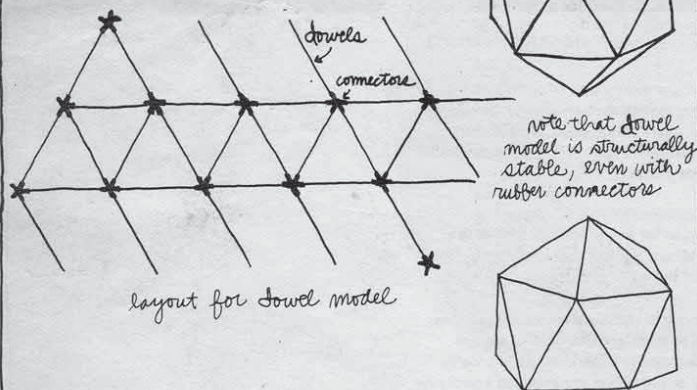 dowels
connectors
note that dowel
model is structurally
stable, even with
rubber connectors
layout for dowel model